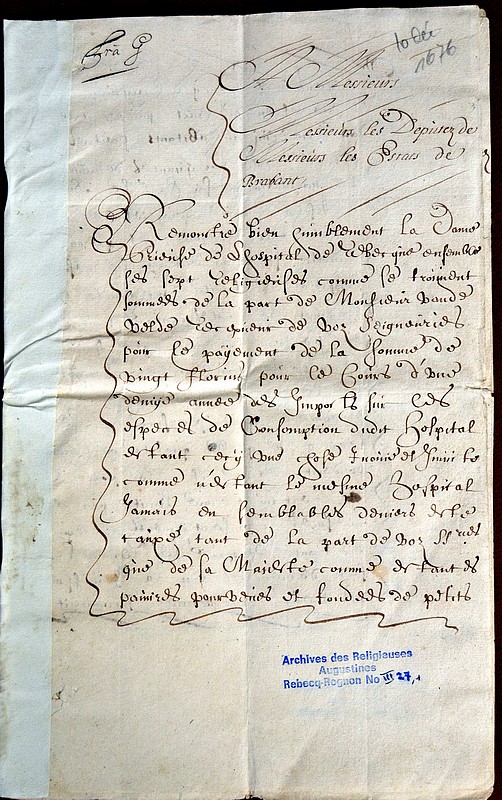 10 déc
1676
A Messieurs
Messieurs les Deputez de
Messieurs les Estats de
Brabant
Remontre bien humblement la Dame
Prieuse de Lhospital de Rebecque ensemble
ses sept religieuses comme se trouvent
sommées de la part de Monsieur vande
velde Recepveur de voz Seigneuries
pour le payement de la somme de
vingt florins pour le Cours d'une
demye année des Imposts sur les
especes de Consomption dudit hospital
estant cecy une chose Inouie et
comme n'estant le mesme hospital
Jamais en semblables deniers esté
tauxé tant de la part de voz
que de sa Majesté comme estantes
pauvres pourveues et fondées de petits
Archives des Religieuses
Augustines
Rebecq-Rognon No III 27,1